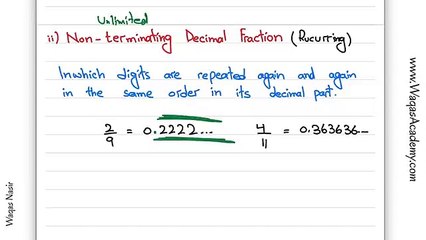 Unlimited
ii) Non-terminating Decimal Fraction (Rucurring)
In which digits are repeated again and again
in the same order in its decimal part.
2/9 = 0.2222... 4/11 = 0.363636...
www.WaqasAcademy.com
Waqas Nasir